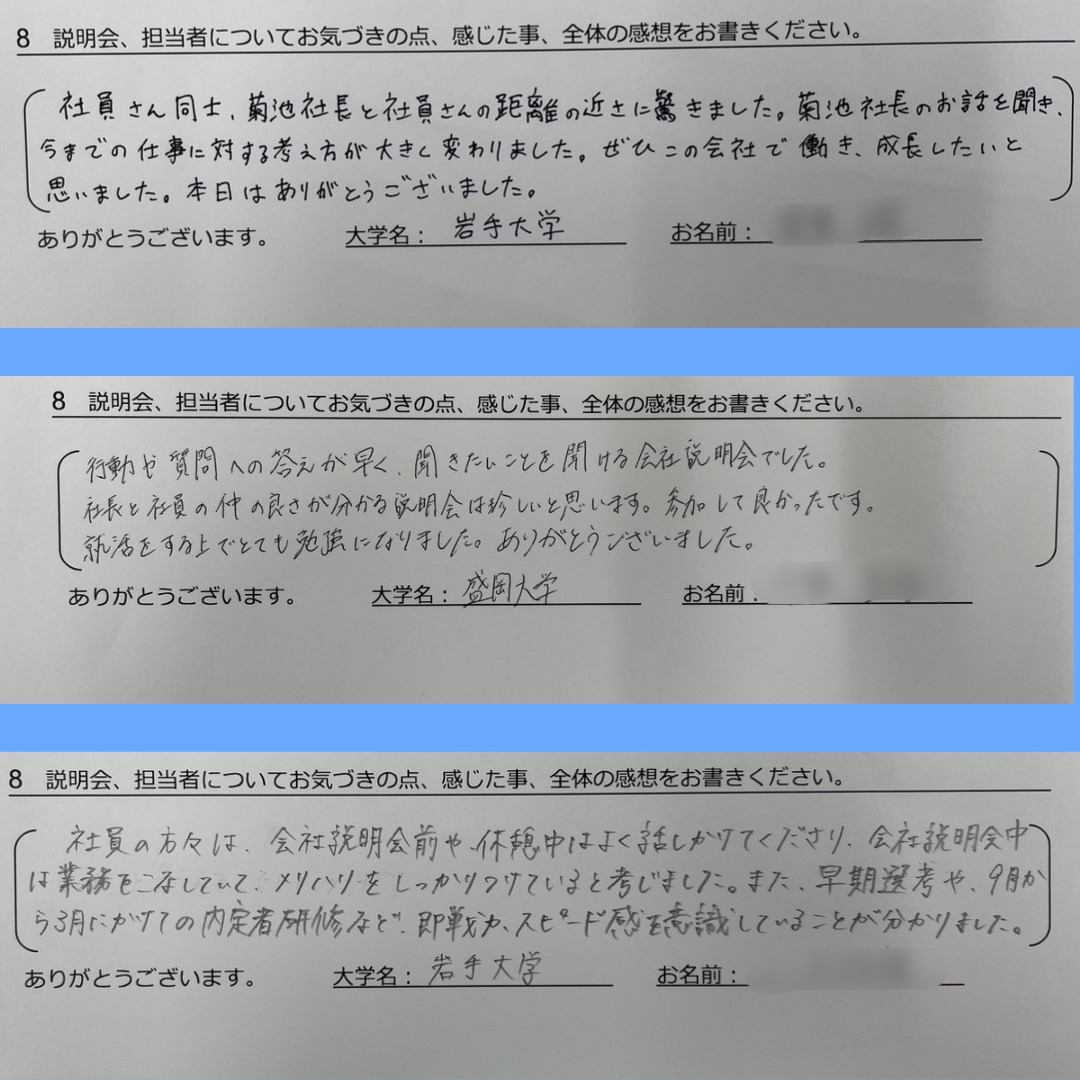 8 説明会、担当者についてお気づきの点、感じた事、全体の感想をお書きください。
社員さん同士、菊池社長と社員さんの距離の近さに驚きました。菊池社長のお話を聞き、
今までの仕事に対する考え方が大きく変わりました。ぜひこの会社で働き、成長したいと
思いました。本日はありがとうございました。
ありがとうございます。 大学名: 岩手大学 お名前:
8 説明会、担当者についてお気づきの点、感じた事、全体の感想をお書きください。
行動や質問への答えが早く、聞きたいことを聞ける会社説明会でした。
社長と社員の仲の良さが分かる説明会は珍しいと思います。参加して良かったです。
就活をする上でとても勉強になりました。ありがとうございました。
ありがとうございます。 大学名: 盛岡大学 お名前:
8 説明会、担当者についてお気づきの点、感じた事、全体の感想をお書きください。
社員の方々は、会社説明会前や、休憩中はよく話しかけてくださり、会社説明会中
は業務をこなしていて、メリハリをしっかりつけていると考じました。また、早期選考や、9月か
ら3月にかけての内定者研修など、即戦力、スピード感を意識していることが分かりました。
ありがとうございます。 大学名: 岩手大学 お名前: